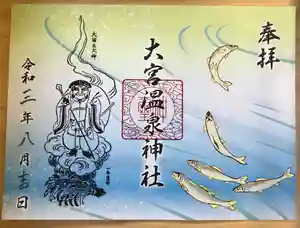 奉拝
大宮温泉神社
令和三年八月吉日